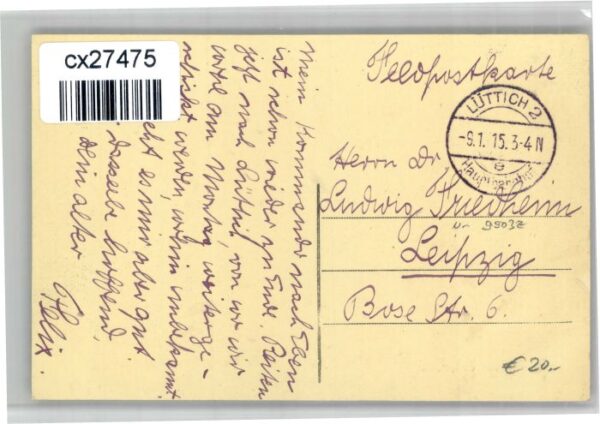 cx27475
Feldpostkarte
LÜTTICH 2
-9.1.15.3-4N
e
Herrn Dr
Ludwig Friedheim
Leipzig
Bose Str. 6.
€ 20.-
Mein Kommando nach Eben
ist schon wieder zu Ende. Reisen
jetzt nach Lüttich, von wo wir
wohl am Montag weiterge-
schickt werden, wohin unbekannt.
geht es mir aber gut
dasselbe hoffend,
Dein alter
Felix.